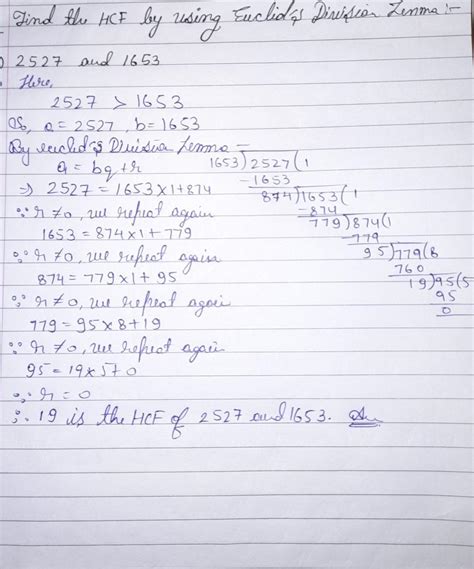 Find the HCF by using Euclid's Division Lemma :-
2527 and 1653
Here,
2527 > 1653
So, a = 2527, b = 1653
By euclid's Division Lemma -
a = bq + r
⇒ 2527 = 1653 × 1 + 874
∵ r ≠ 0, we repeat again
1653 = 874 × 1 + 779
∵ r ≠ 0, we repeat again
874 = 779 × 1 + 95
∵ r ≠ 0, we repeat agai
779 = 95 × 8 + 19
∵ r ≠ 0, we repeat again
95 = 19 × 5 + 0
∵ r = 0
∴ 19 is the HCF of 2527 and 1653. Ans
1653)2527(1
-1653
874)1653(1
-874
779)874(1
-779
95)779(8
760
19)95(5
95
0